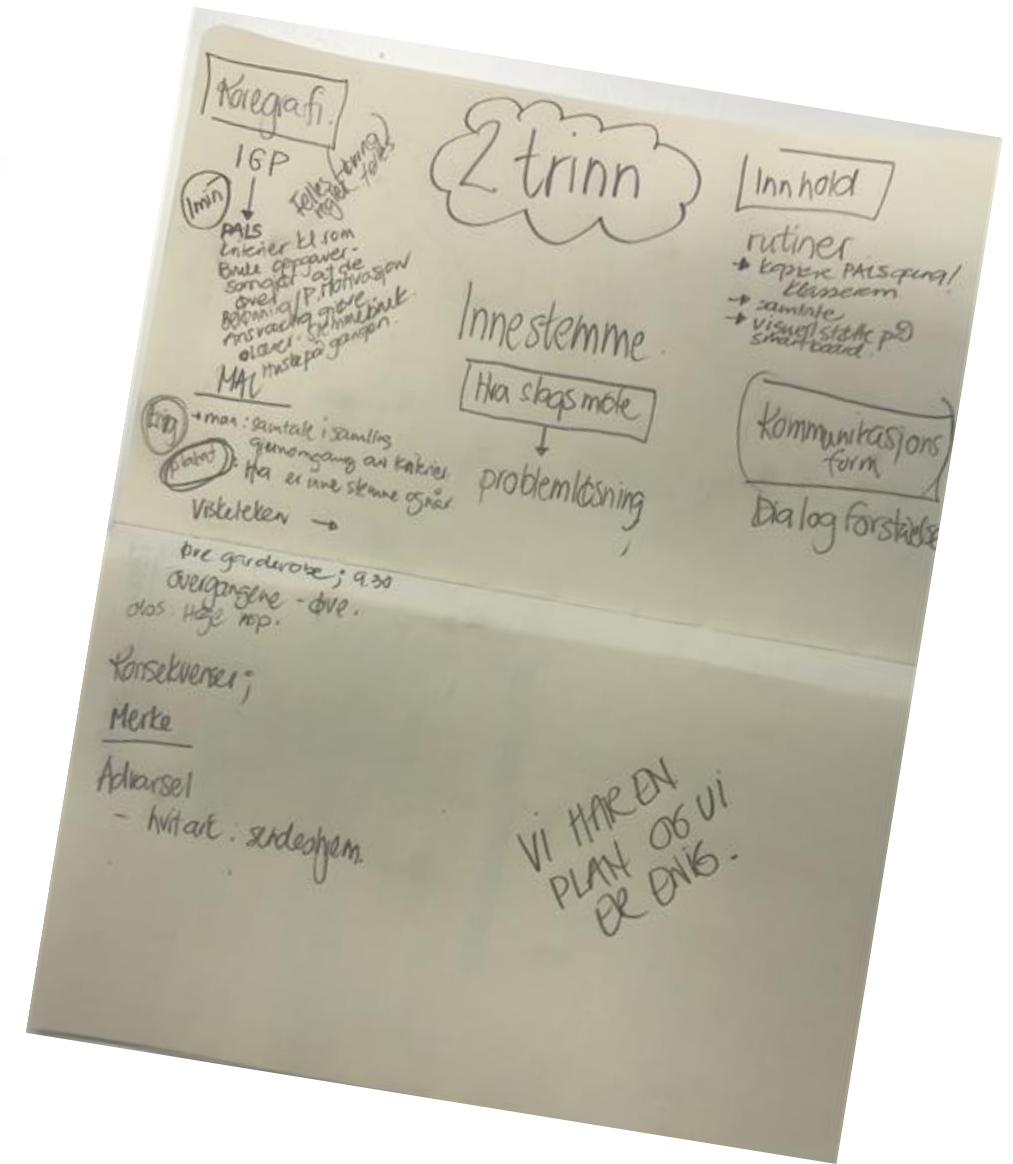 Koregrafi.
IGP
1min
Felles
PALS
Kriterier kl rom
Bruke oppgaver
som gjør at de
øver
Belønning / P. Motivasjon
Ansvarlig gjøre
elever.
Huske på gangen.
MÅL
man: samtale i samling
gjennomgang av kriterier.
plakat: Hva er inne stemme og når
Viskeleken →
øve garderobe; 9.30
overgangene - øve.
Konsekvenser;
Merke
Advarsel
- hvitark: sendes hjem.
2 trinn
Innestemme.
Hva slags møte
↓
problemløsning
;
VI HAR EN
PLAN OG VI
ER ENIG.
Innhold
rutiner
→ kopiere PALS gang/
klasserom
→ samtale
→ visuell støtte på
smartboard.
Kommunikasjons
form
Dialog forståelse